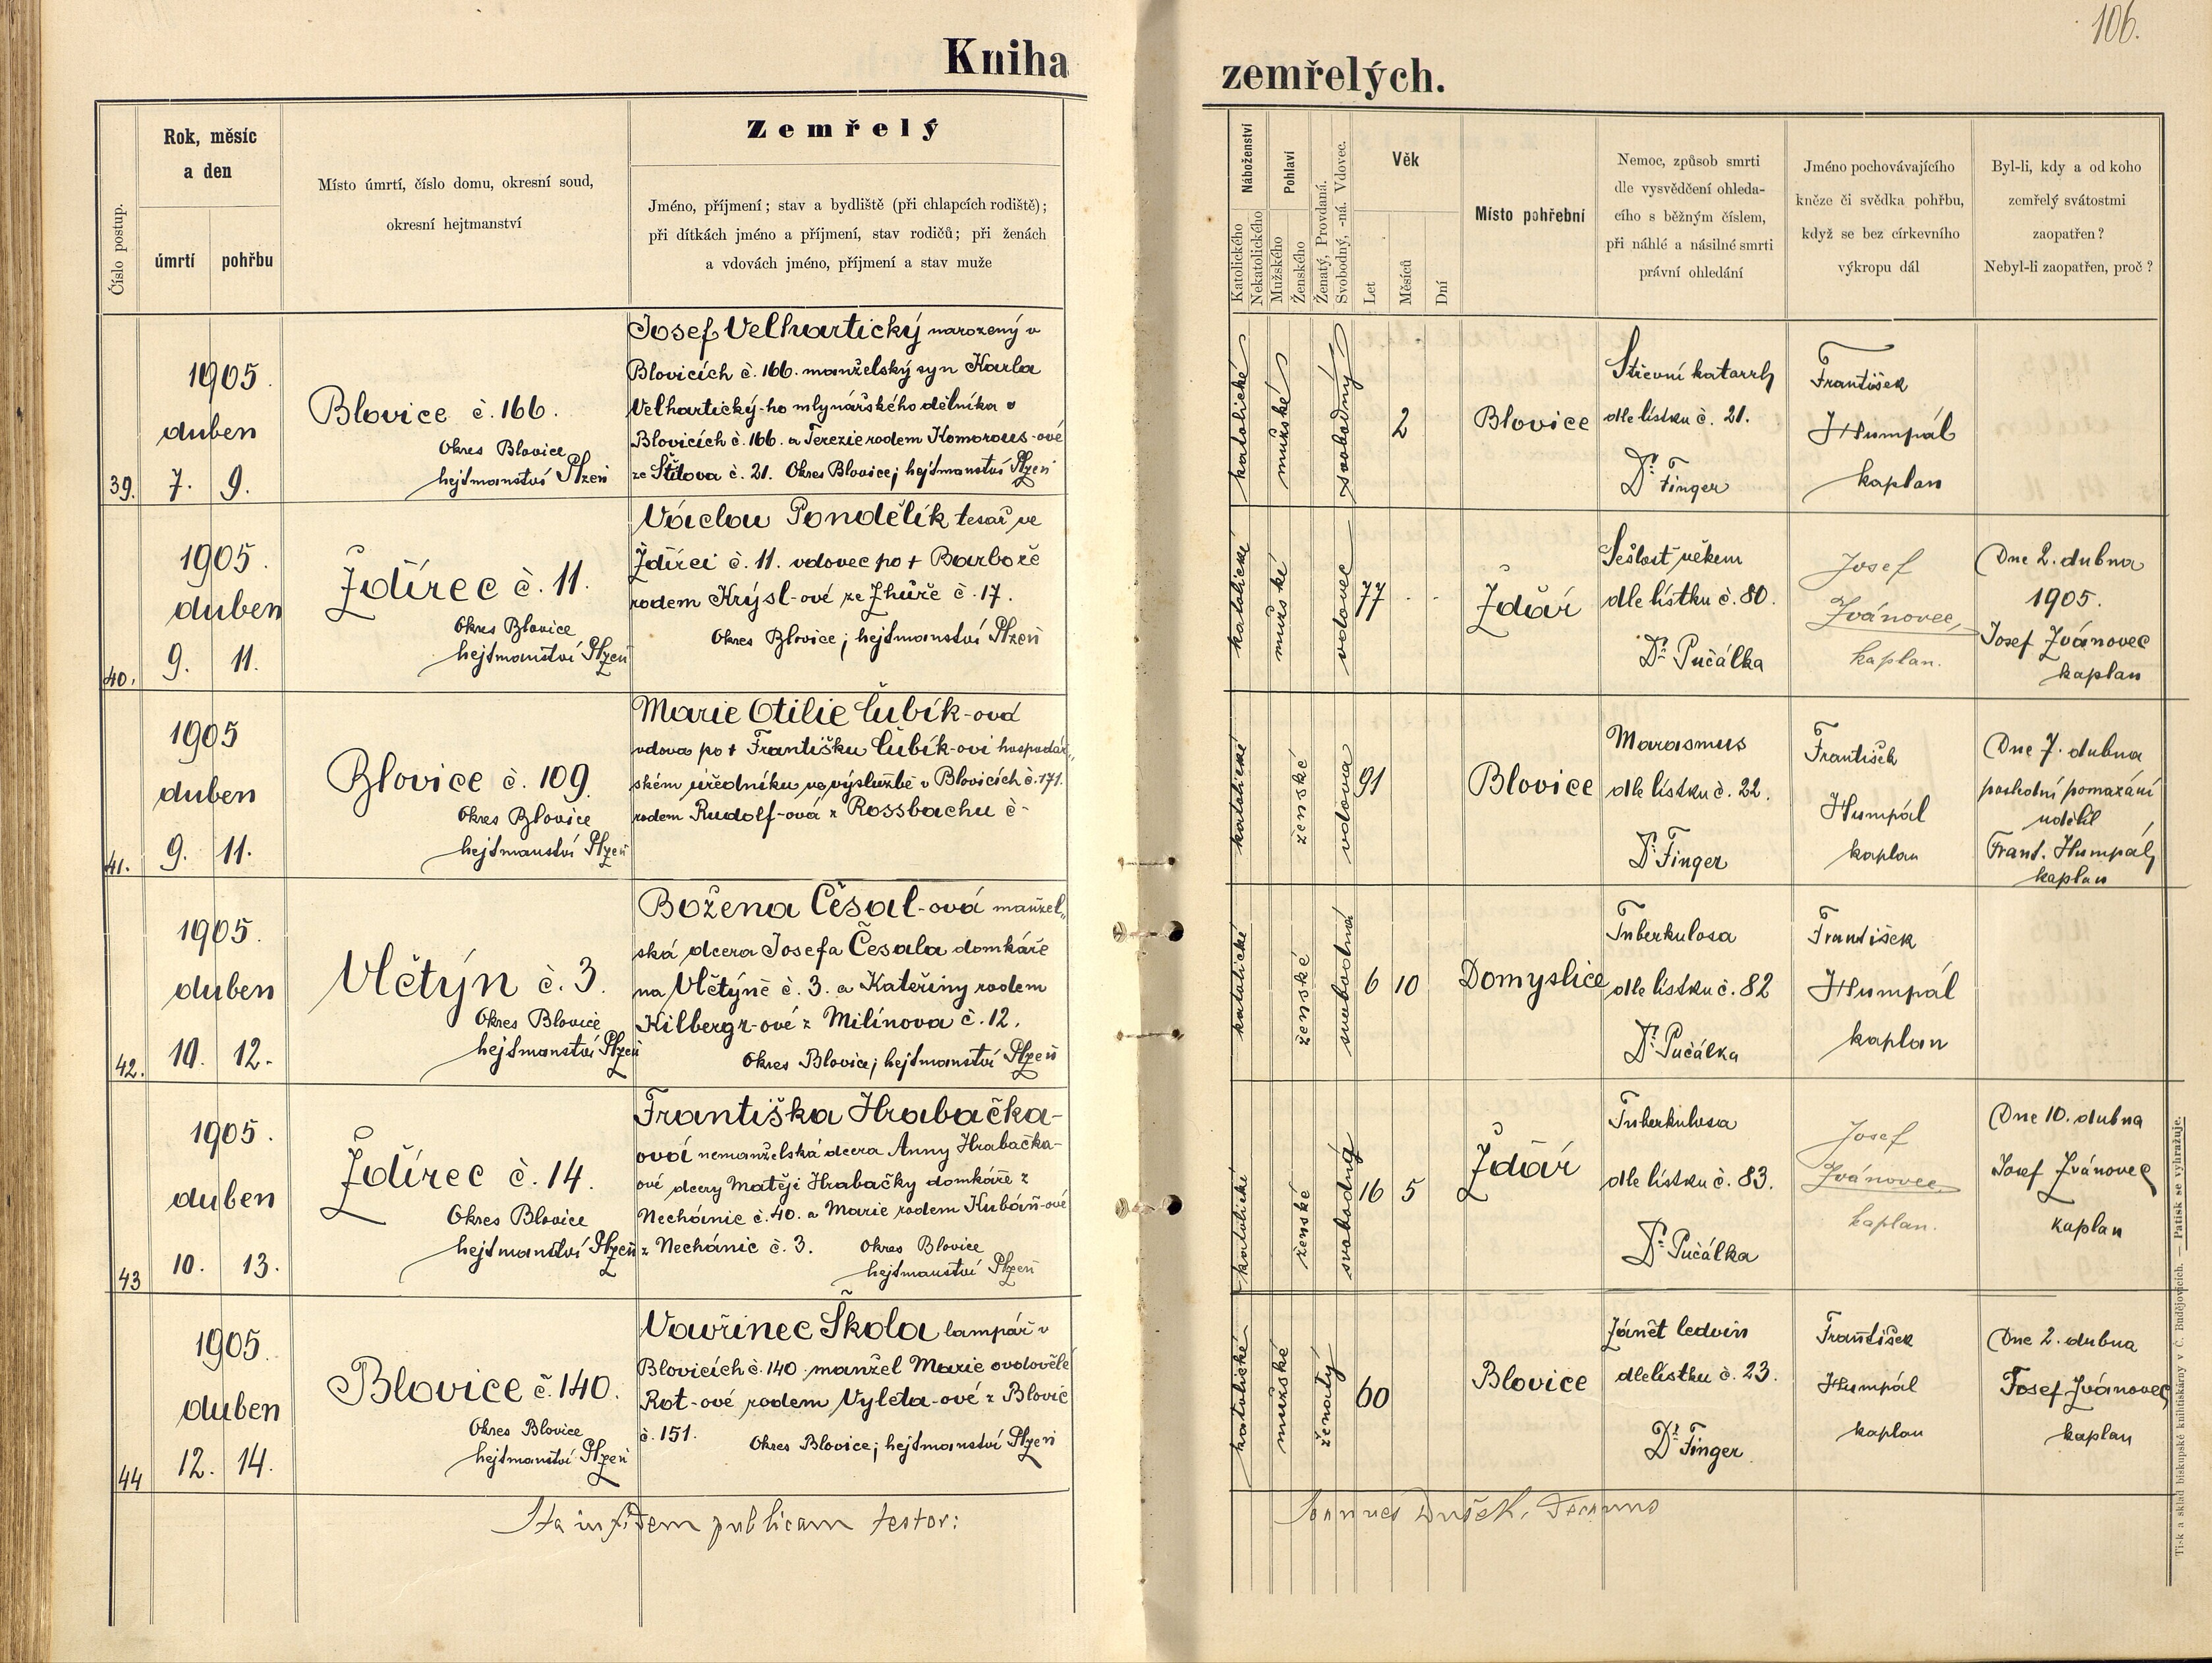 106.
Kniha zemřelých.
Číslo postup.
Rok, měsíc
a den
úmrtí
pohřbu
Místo úmrtí, číslo domu, okresní soud,
okresní hejtmanství
Zemřelý
Jméno, příjmení; stav a bydliště (při chlapcích rodiště);
při dítkách jméno a příjmení, stav rodičů; při ženách
a vdovách jméno, příjmení a stav muže
Náboženství
Katolického
Nekatolického
Pohlaví
Mužského
Ženského
Ženatý, Provdaná.
Svobodný, -ná. Vdovec.
Věk
Let
Měsíců
Dní
Místo pohřební
Nemoc, způsob smrti
dle vysvědčení ohleda-
cího s běžným číslem,
při náhlé a násilné smrti
právní ohledání
Jméno pochovávajícího
kněze či svědka pohřbu,
když se bez církevního
výkropu dál
Byl-li, kdy a od koho
zemřelý svátostmi
zaopatřen?
Nebyl-li zaopatřen, proč?
39.
1905.
duben
7. 9.
Blovice č. 166.
Okres Blovice
hejtmanství Plzeň
Josef Velhartický narozený v
Blovicích č. 166. manželský syn Karla
Velhartický-ho mlynářského dělníka v
Blovicích č. 166. a Terezie rodem Komorous-ové
ze Štítova č. 21. Okres Blovice; hejtmanství Plzeň
katolické
mužské
svobodný
2
Blovice
Střevní katarrh
dle lístku č. 21.
Dr. Finger
František
Humpál
kaplan
40.
1905.
duben
9. 11.
Ždírec č. 11.
Okres Blovice
hejtmanství Plzeň
Václav Pondělík tesař ve
Ždírci č. 11. vdovec po + Barboře
rodem Krýsl-ové ze Zhůře č. 17.
Okres Blovice; hejtmanství Plzeň
katolické
mužské
vdovec
77 . .
Ždár
Sešlost věkem
dle lístku č. 80.
Dr. Pučálka
Josef
Ivánovec,
kaplan.
Dne 2. dubna
1905.
Josef Ivánovec
kaplan
41.
1905
duben
9. 11.
Blovice č. 109.
Okres Blovice
hejtmanství Plzeň
Marie Otilie Čubík-ová
vdova po + Františku Čubík-ovi hospodář„
ském úředníku ve výslužbě v Blovicích č. 171.
rodem Rudolf-ová z Rossbachu č -
katolické
ženské
vdova
91
Blovice
Marasmus
dle lístku č. 22.
Dr. Finger
František
Humpál
kaplan
Dne 7. dubna
poslední pomazání
udělil
Frant. Humpál,
kaplan
42.
1905.
duben
10. 12.
Vlčtýn č. 3.
Okres Blovice
hejtmanství Plzeň
Božena Česal-ová manžel„
ská dcera Josefa Česala domkáře
na Vlčtýně č. 3. a Kateřiny rodem
Kilbergr-ové z Milínova č. 12.
Okres Blovice; hejtmanství Plzeň
katolické
ženské
svobodná
6 10
Domyslice
Tuberkulosa
dle lístku č. 82
Dr. Pučálka
František
Humpál
kaplan
43
1905.
duben
10. 13.
Ždírec č. 14.
Okres Blovice
hejtmanství Plzeň
Františka Hrabačka-
ová nemanželská dcera Anny Hrabačka-
ové dcery Matěji Hrabačky domkáře z
Nechánic č. 40. a Marie rodem Kubáň-ové
z Nechánic č. 3. Okres Blovice
hejtmanství Plzeň
katolické
ženské
svobodná
16 5
Ždár
Tuberkulosa
dle lístku č. 83.
Dr. Pučálka
Josef
Ivánovec,
kaplan.
Dne 10. dubna
Josef Ivánovec
kaplan
44
1905.
duben
12. 14.
Blovice č. 140.
Okres Blovice
hejtmanství Plzeň
Vavřinec Škola lampář v
Blovicích č. 140 manžel Marie ovdovělé
Rot-ové rodem Vyleta-ové z Blovic
č. 151. Okres Blovice; hejtmanství Plzeň
katolické
mužské
ženatý
60
Blovice
Zánět ledvin
dle lístku č. 23.
Dr. Finger
František
Humpál
kaplan
Dne 2. dubna
Josef Ivánovec
kaplan
Ita in fidem publicam testor:
Joannes Dušek, Decanus
Tisk a sklad biskupské knihtiskárny v Č. Budějovicích. — Patisk se vyhražuje.